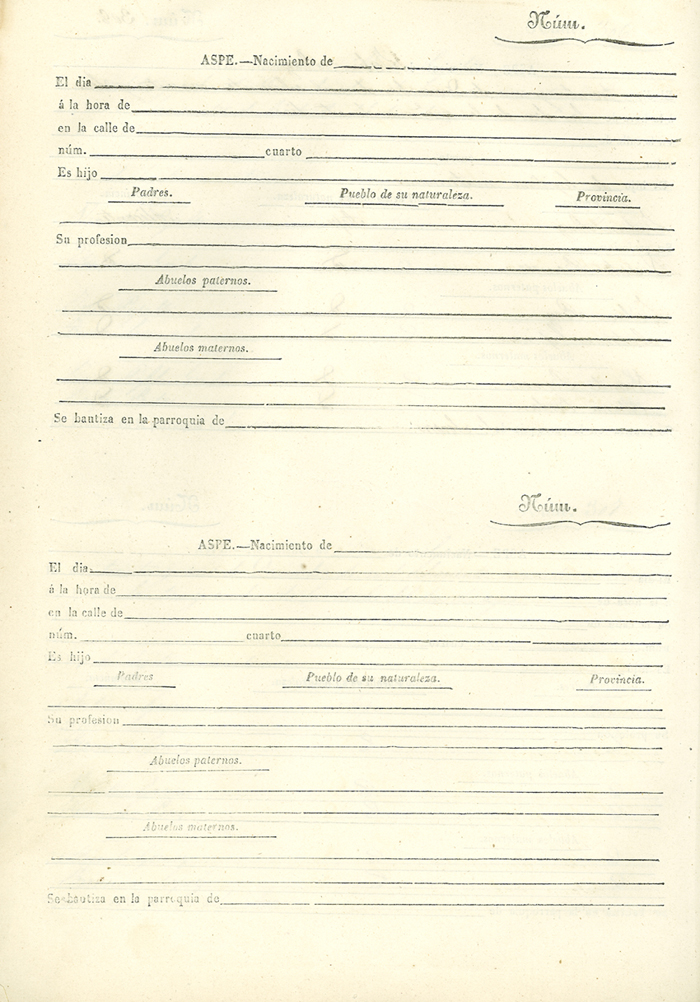 Núm.
ASPE.—Nacimiento de
El dia
á la hora de
en la calle de
núm. cuarto
Es hijo
Padres. Pueblo de su naturaleza. Provincia.
Su profesion
Abuelos paternos.
Abuelos maternos.
Se bautiza en la parroquia de
Núm.
ASPE.—Nacimiento de
El dia
á la hora de
en la calle de
núm. cuarto
Es hijo
Padres Pueblo de su naturaleza. Provincia.
Su profesion
Abuelos paternos.
Abuelos maternos.
Se bautiza en la parroquia de